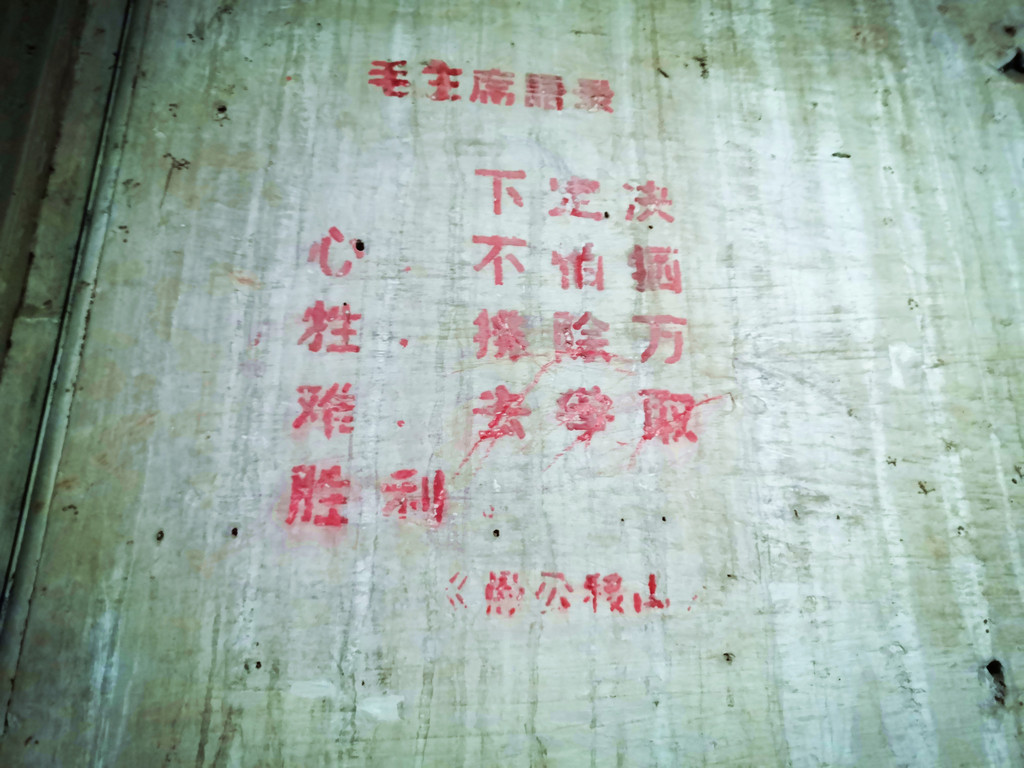 毛主席語录
下定决
心，不怕牺
牲，排除万
难，去争取
胜利。
《愚公移山》